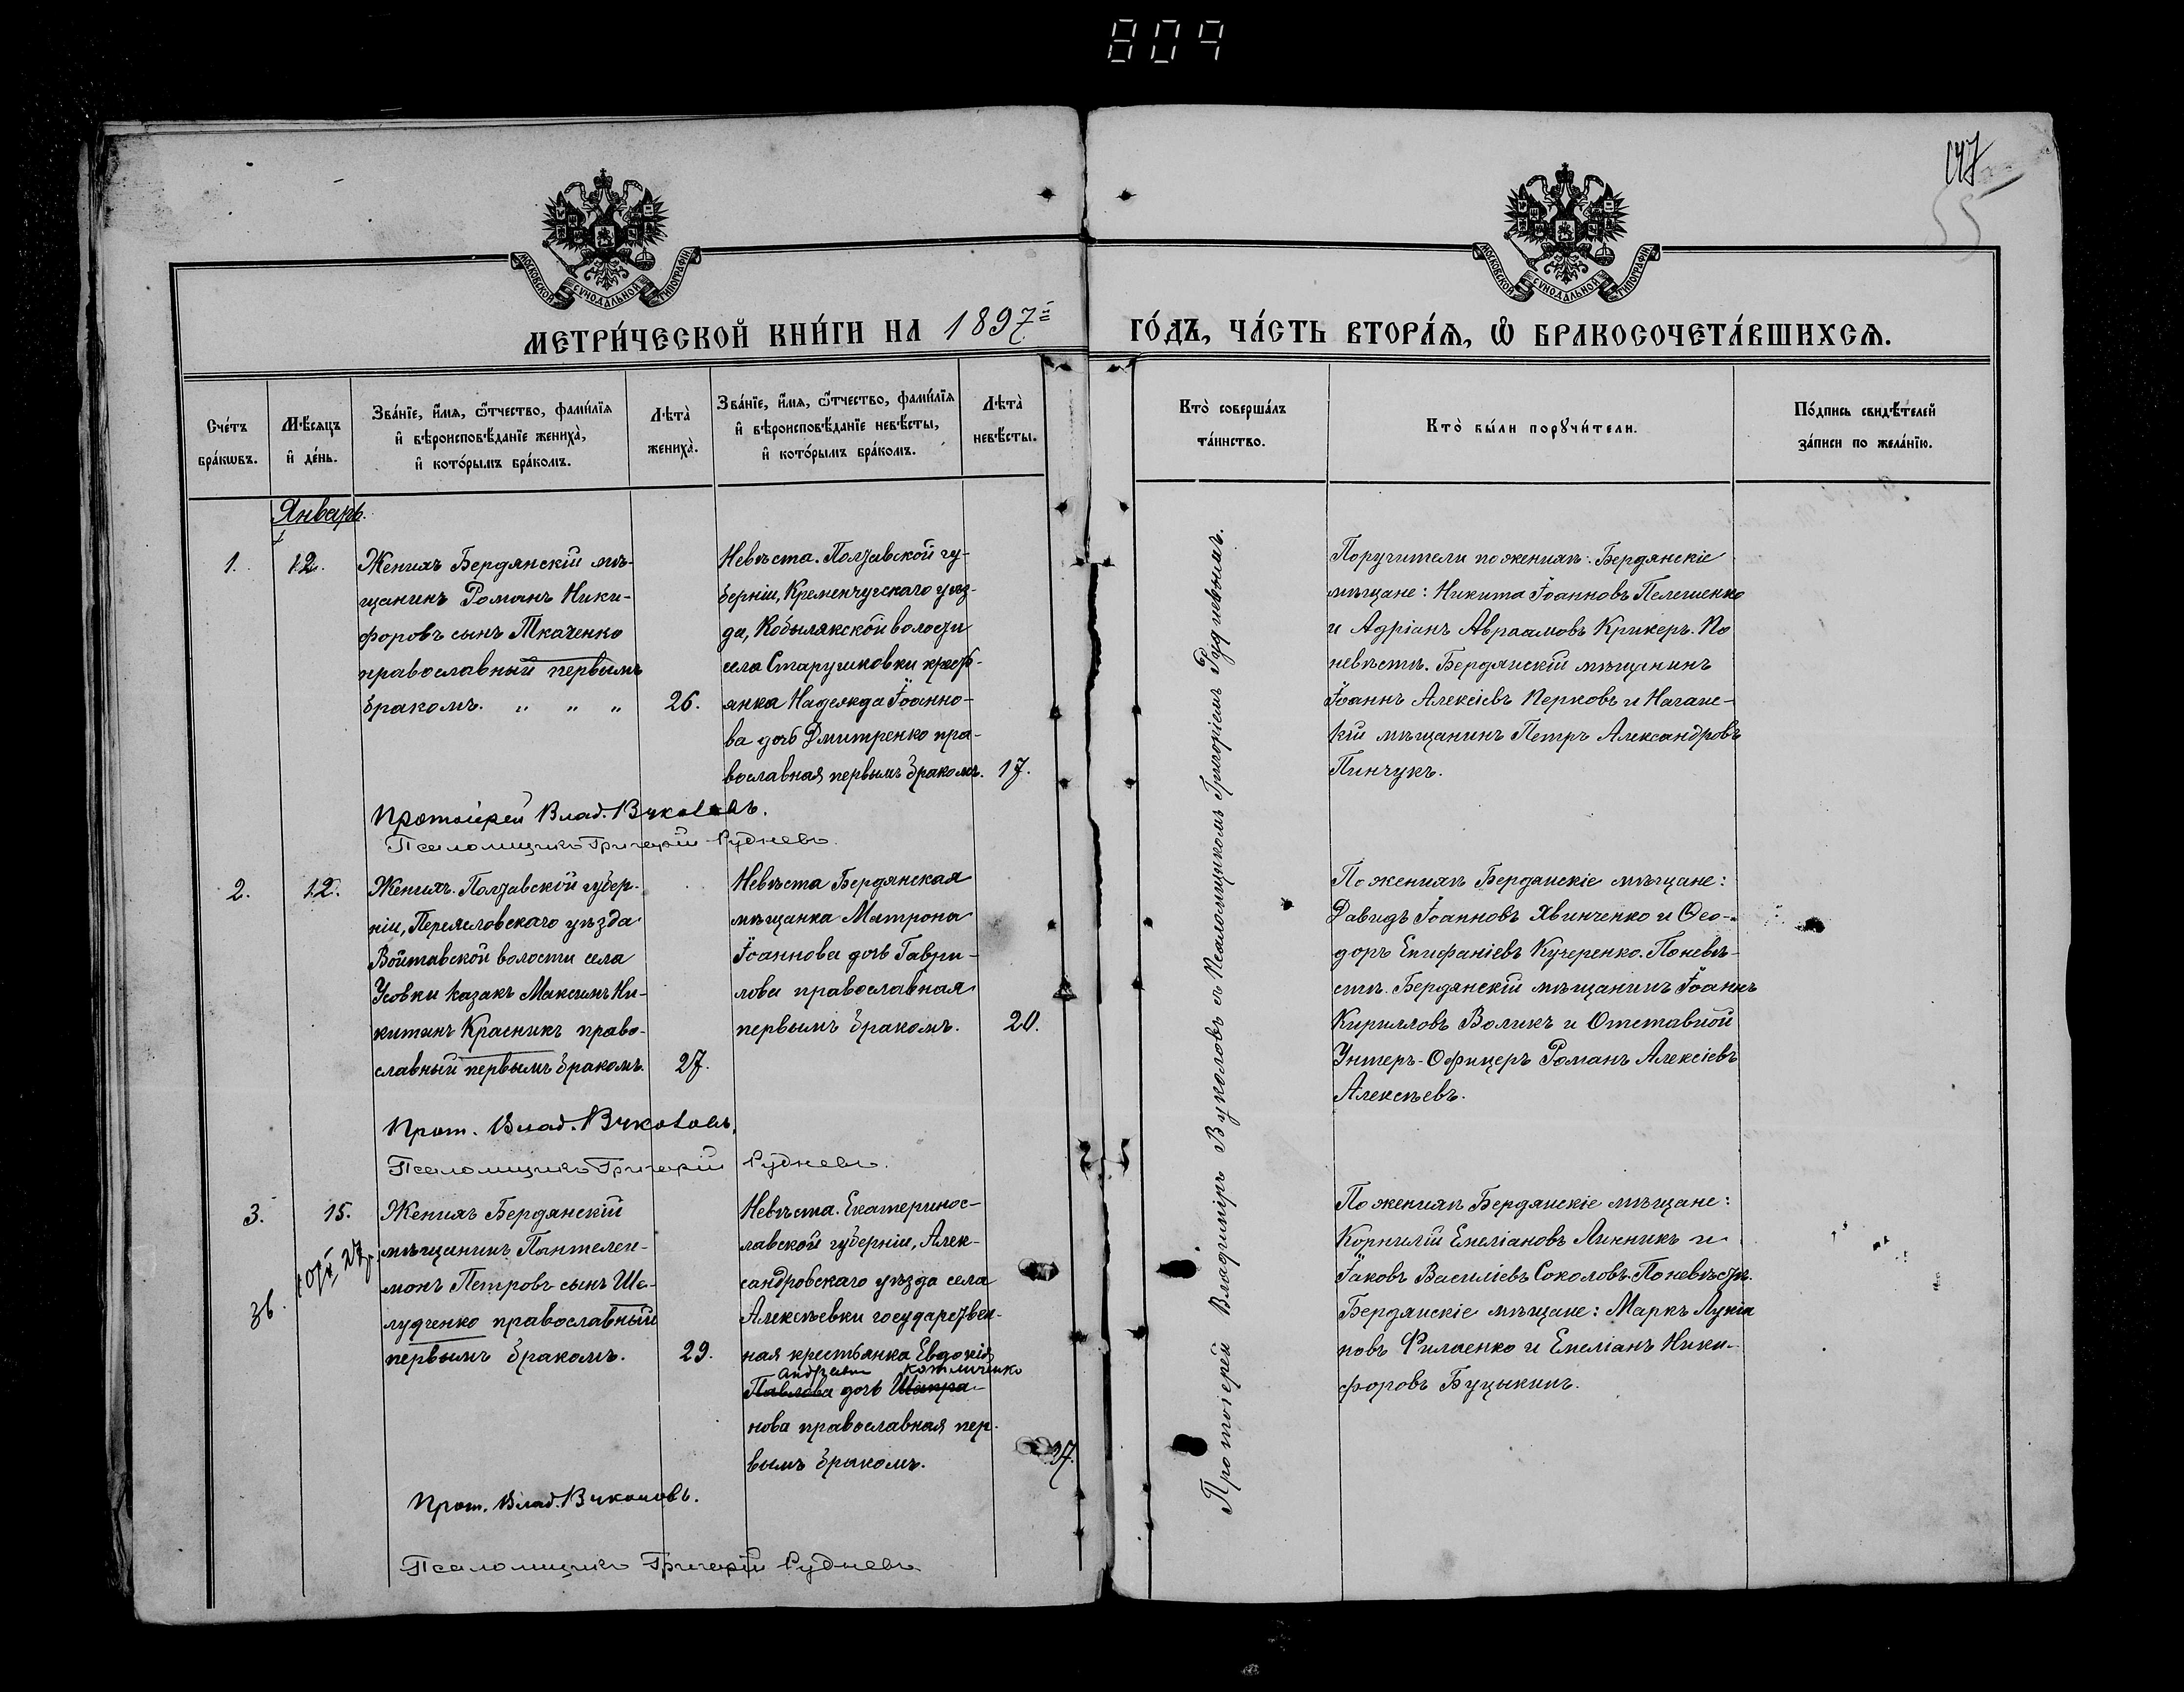 809
147
55
МОСКОВСКОЙ СѴНОДАЛЬНОЙ ТИПОГРАФІИ
МОСКОВСКОЙ СѴНОДАЛЬНОЙ ТИПОГРАФІИ
МЕТРИ́ЧЕСКОЙ КНИ́ГИ НА 1897 ГО́ДЪ, ЧА́СТЬ ВТОРА́Я, Ѡ҆ БРАКОСОЧЕТА́ВШИХСЯ.
Сче́тъ
бра́кѡвъ.
Мѣ́сяцъ
и҆ де́нь.
Зва́нїе, и҆́мя, ѻ҆́тчество, фами́лїя
и҆ вѣроисповѣ́данїе жениха̀,
и҆ кото́рымъ бра́комъ.
Лѣта̀
жениха̀.
Зва́нїе, и҆́мя, ѻ҆́тчество, фами́лїя
и҆ вѣроисповѣ́данїе невѣ́сты,
и҆ кото́рымъ бра́комъ.
Лѣта̀
невѣ́сты.
Кто̀ соверша́лъ
та́инство.
Кто̀ бы́ли порꙋчи́тели.
По́дпись свидѣ́телей
за́писи по жела́нїю.
Январь.
1.
12.
Женихъ Бердянскій мѣ-
щанинъ Романъ Ники-
форовъ сынъ Ткаченко
православный первымъ
бракомъ. „ „ „
26.
Невѣста. Полтавской гу-
берніи, Кременчугскаго уѣз-
да, Кобылякской волости
села Старушковки крест-
янка Надежда Іоанно-
ва дочь Дмитренко пра-
вославная первымъ бракомъ.
17.
Протоіерей Влад. Вуколовъ.
Псаломщикъ Григорій Рудневъ.
Поручители по женихѣ: Бердянскіе
мѣщане: Никита Іоанновъ Пелешенко
и Адріанъ Авраамовъ Крикеръ. По
невѣстѣ. Бердянскій мѣщанинъ
Іоаннъ Алексіевъ Перковъ и Ногайс-
кій мѣщанинъ Петръ Александровъ
Пинчукъ.
2.
12.
Женихъ. Полтавской губер-
ніи, Переясловскаго уѣзда
Войтавской волости села
Усовки казакъ Максимъ Ни-
китинъ Красникъ право-
славный первымъ бракомъ.
27.
Невѣста Бердянская
мѣщанка Матрона
Іоаннова дочь Гаври-
лова православная
первымъ бракомъ.
20.
Прот. Влад. Вуколовъ.
Псаломщикъ Григорій Рудневъ.
По женихѣ Бердянскіе мѣщане:
Давидъ Іоанновъ Явинченко и Ѳео-
доръ Епифаніевъ Кучеренко. По невѣ-
стѣ. Бердянскій мѣщанинъ Іоаннъ
Кирилловъ Воликъ и Отставной
Унтеръ-Офицеръ Романъ Алексіевъ
Алексѣевъ.
3.
15.
Женихъ Бердянскій
мѣщанинъ Пантелеи-
монъ Петровъ сынъ Ше-
лудченко православный
первымъ бракомъ.
29.
Невѣста. Екатеринос-
лавской губерніи, Алек-
сандровскаго уѣзда села
Алексѣевки государствен-
ная крестьянка Евдокія
Андреева Котличенко
Павлова дочь Шапра-
нова православная пер-
вымъ бракомъ.
27.
Прот. Влад. Вуколовъ.
Псаломщикъ Григорій Рудневъ
По женихѣ Бердянскіе мѣщане:
Корнилій Емеліановъ Линникъ и
Іаковъ Василіевъ Соколовъ. По невѣстѣ.
Бердянскіе мѣщане: Маркъ Лукіа
новъ Филаенко и Емеліанъ Ники-
форовъ Буцыкинъ.
Протоіерей Владиміръ Вуколовъ съ Псаломщикомъ Григоріемъ Рудневымъ.